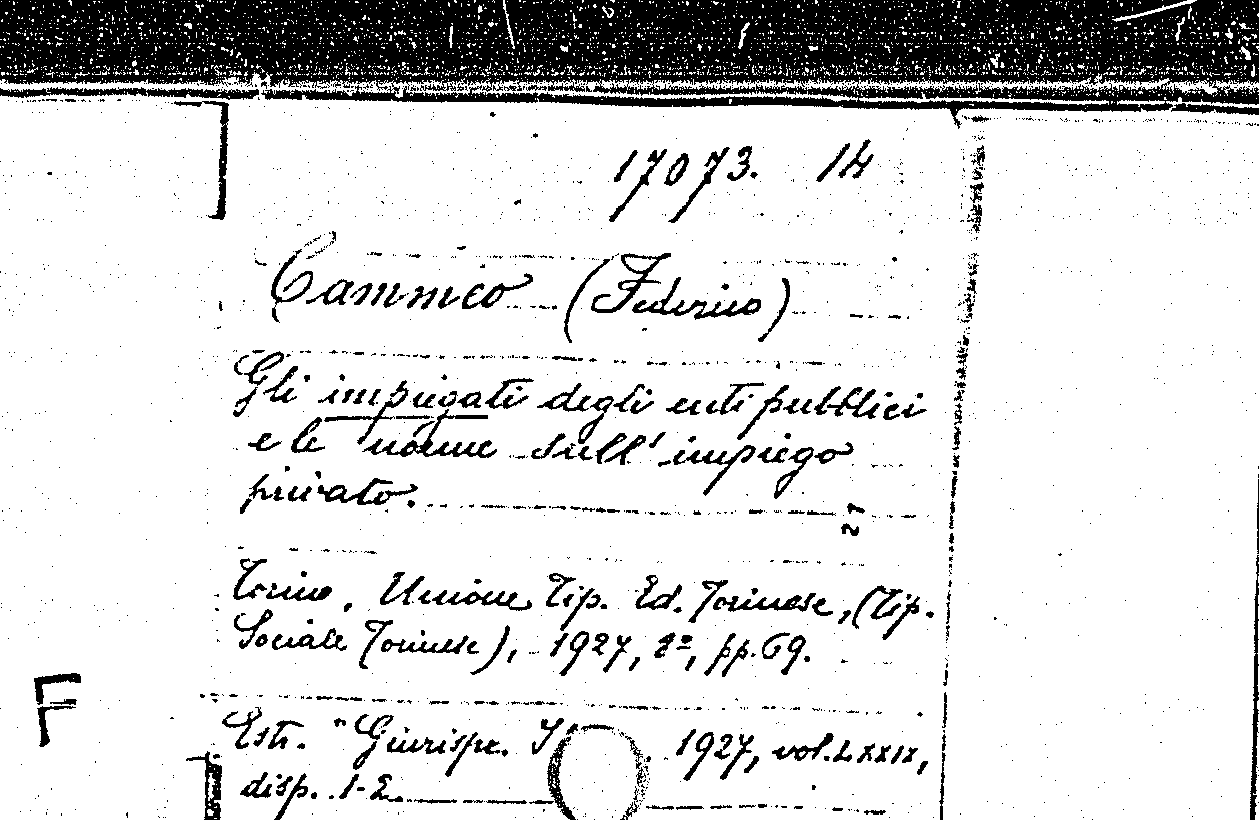 17073. 14
Cammeo (Federico)
Gli impiegati degli enti pubblici
e le norme sull'impiego
privato.
27
Torino, Unione Tip. Ed. Torinese, (Tip.
Sociale Torinese), 1927, 8º, pp. 69.
F
Estr. "Giurispr. 1927, vol. LXXIX,
disp. 1-2